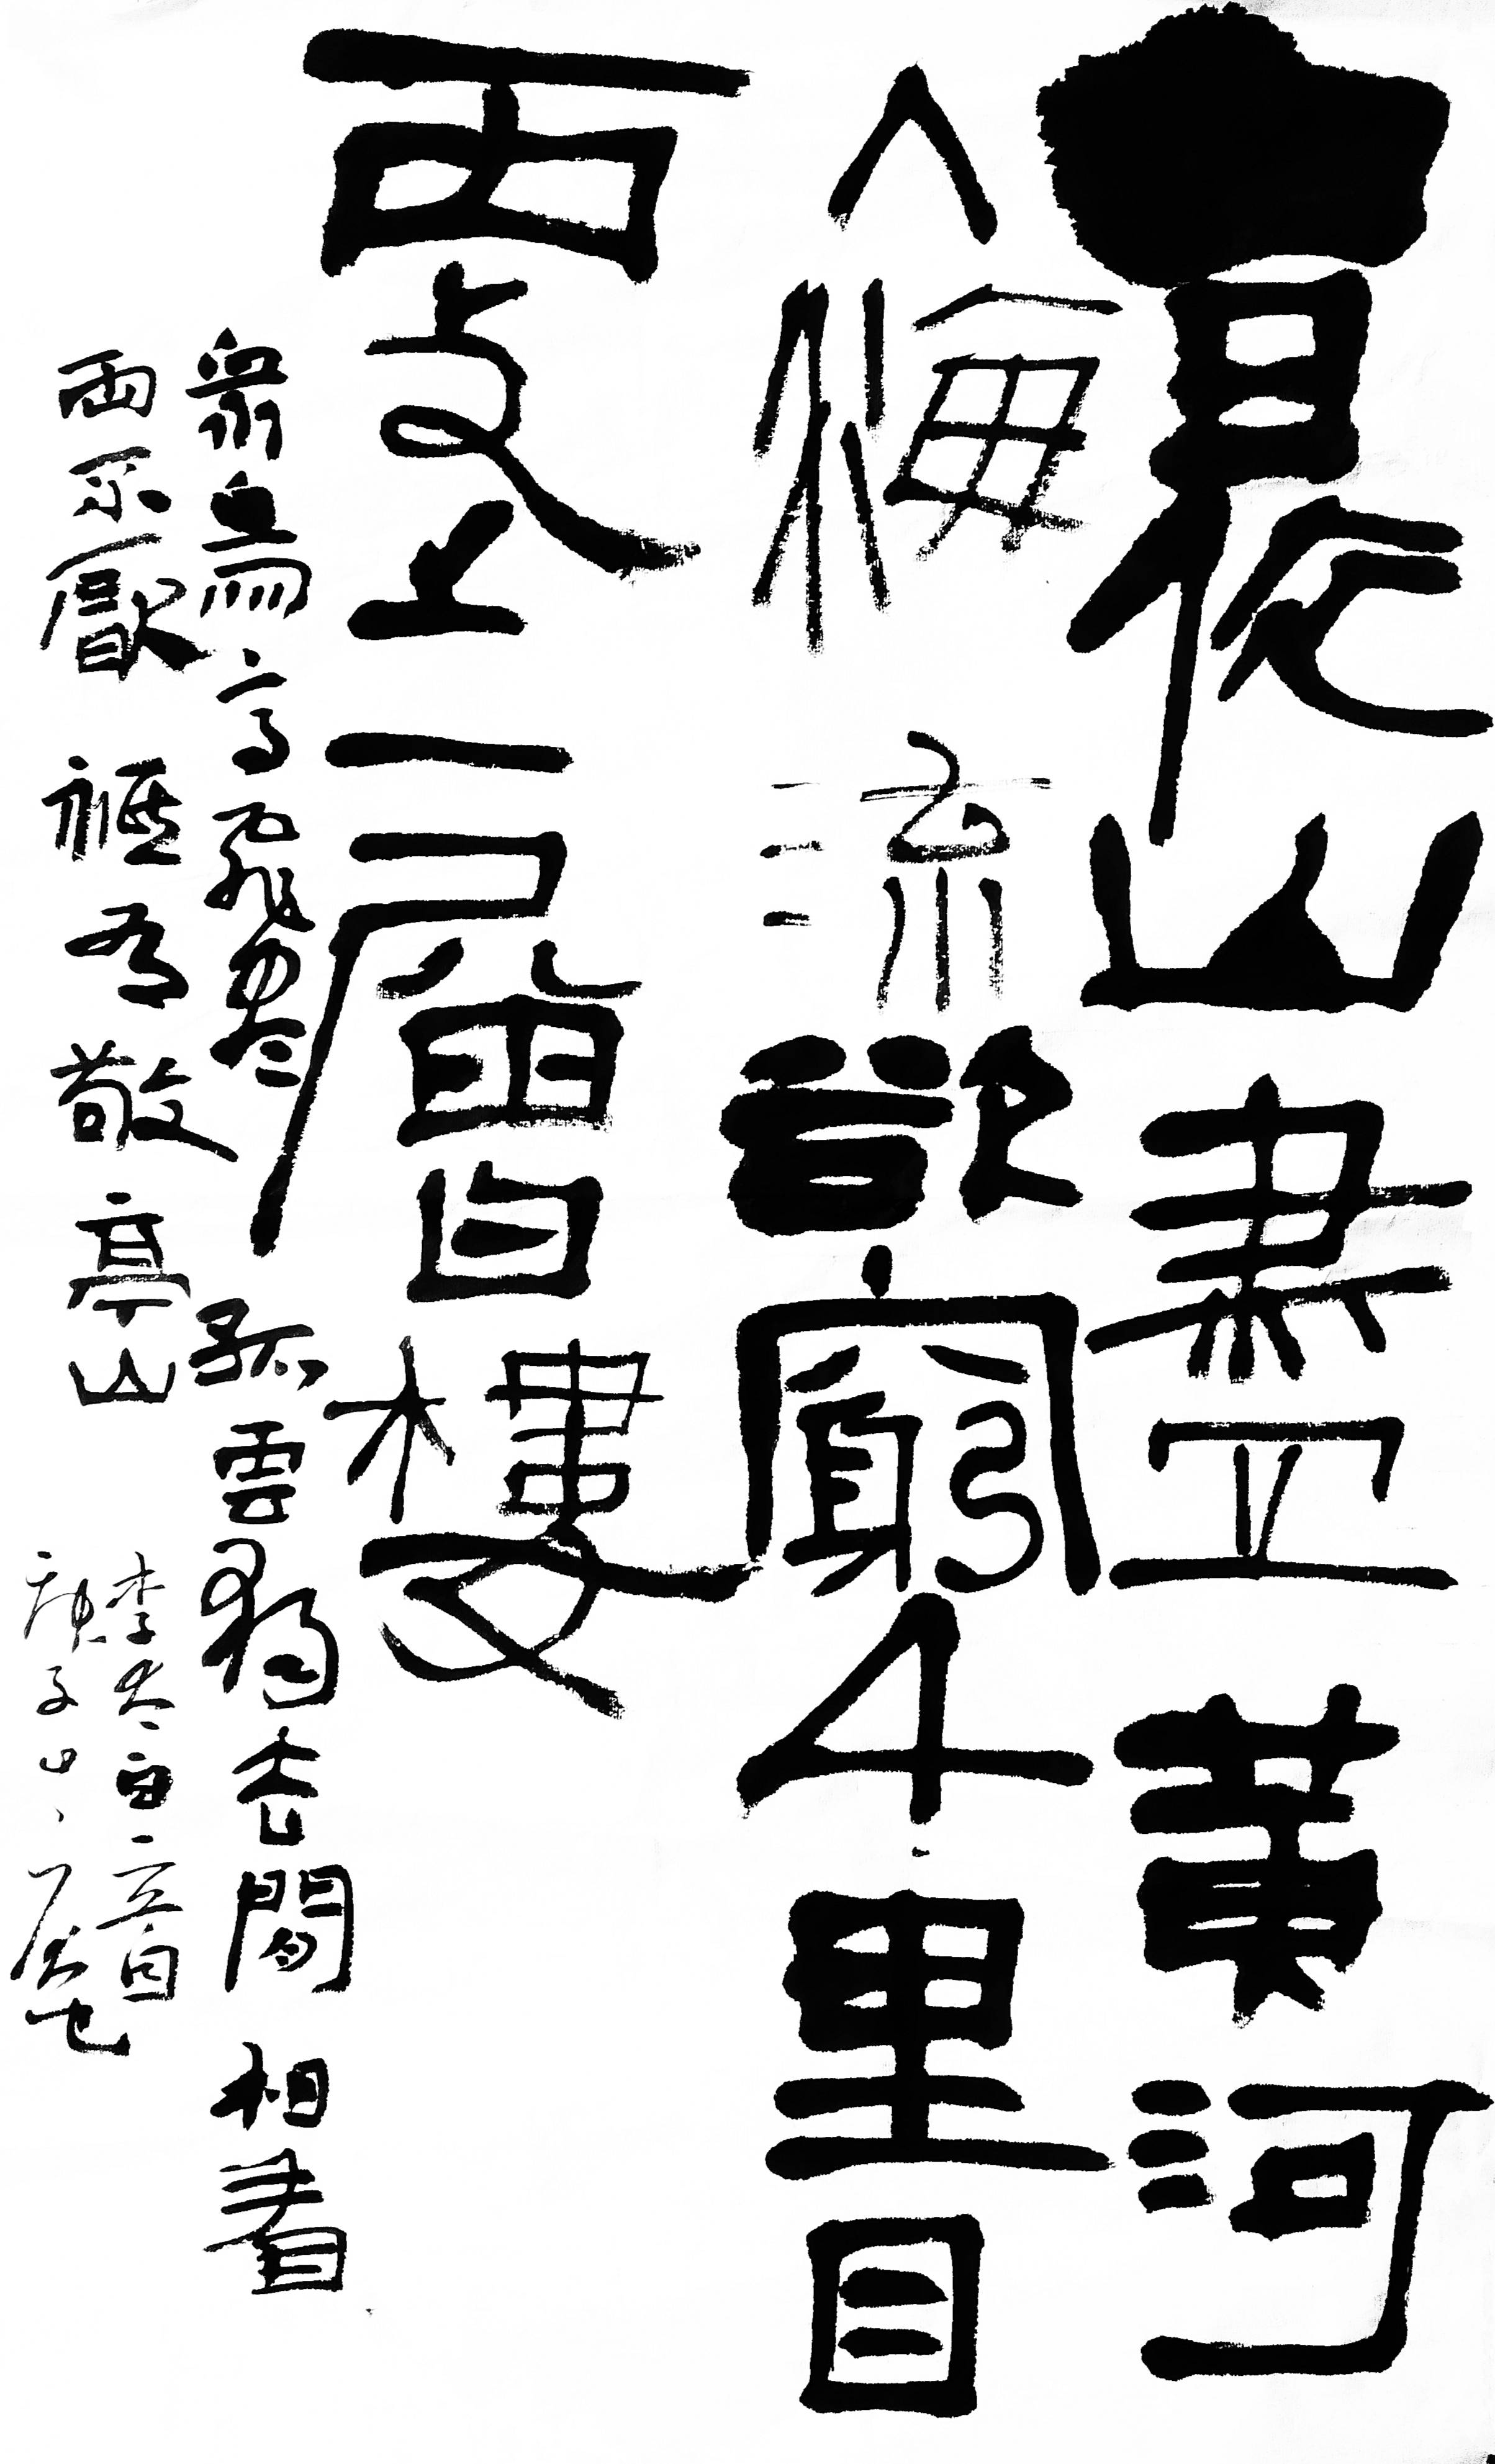 白日依山盡黃河
入海流欲窮千里目
更上一層樓
眾鳥高飛盡孤雲獨去閒相看
兩不厭祗有敬亭山
李太白
庚子